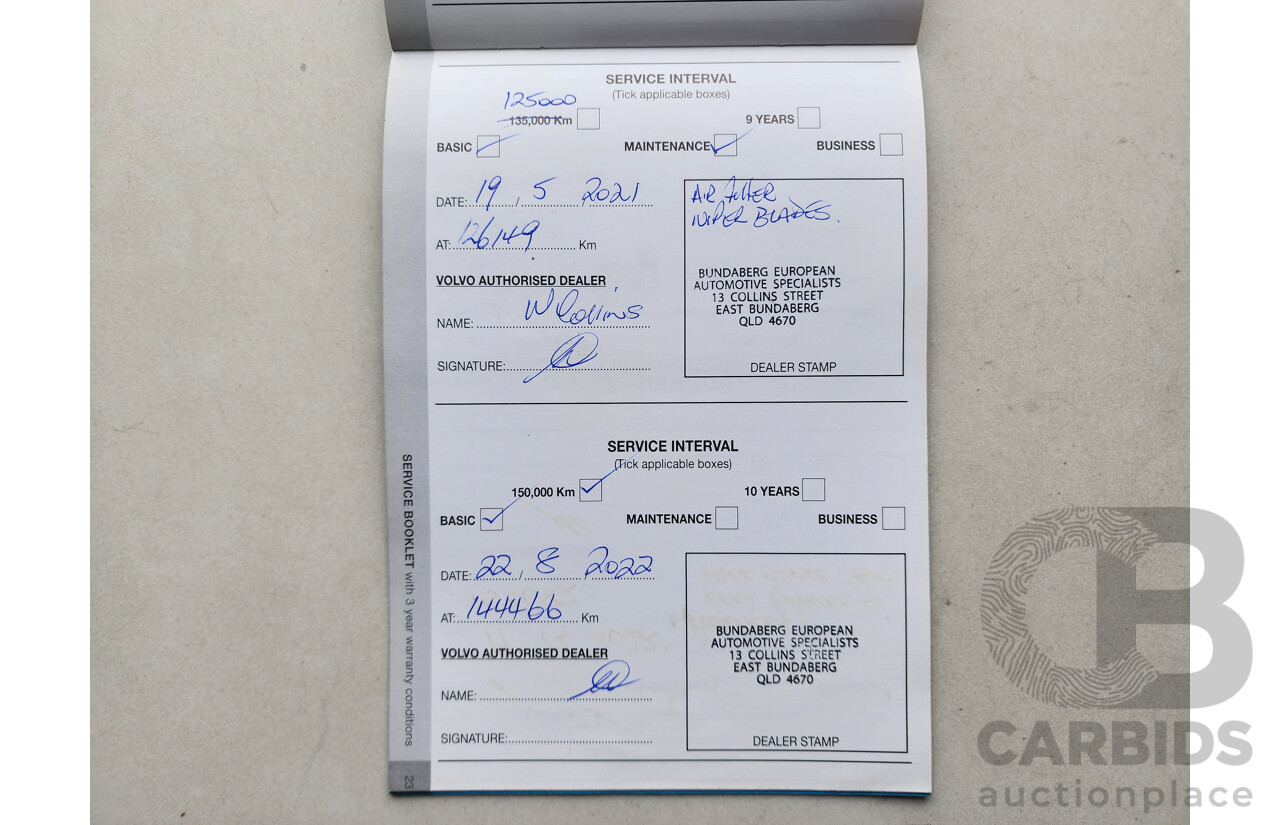 SERVICE INTERVAL
(Tick applicable boxes)
125000
135,000 Km
9 YEARS
BASIC
MAINTENANCE
BUSINESS
DATE: 19 / 5 / 2021
AT: 126149 Km
VOLVO AUTHORISED DEALER
NAME: W Collins
SIGNATURE:
AIR FILTER
WIPER BLADES.
BUNDABERG EUROPEAN
AUTOMOTIVE SPECIALISTS
13 COLLINS STREET
EAST BUNDABERG
QLD 4670
DEALER STAMP
SERVICE INTERVAL
(Tick applicable boxes)
150,000 Km
10 YEARS
BASIC
MAINTENANCE
BUSINESS
DATE: 22 / 8 / 2022
AT: 144466 Km
VOLVO AUTHORISED DEALER
NAME:
SIGNATURE:
BUNDABERG EUROPEAN
AUTOMOTIVE SPECIALISTS
13 COLLINS STREET
EAST BUNDABERG
QLD 4670
DEALER STAMP
SERVICE BOOKLET with 3 year warranty conditions
23
CB
CARBIDS
auctionplace